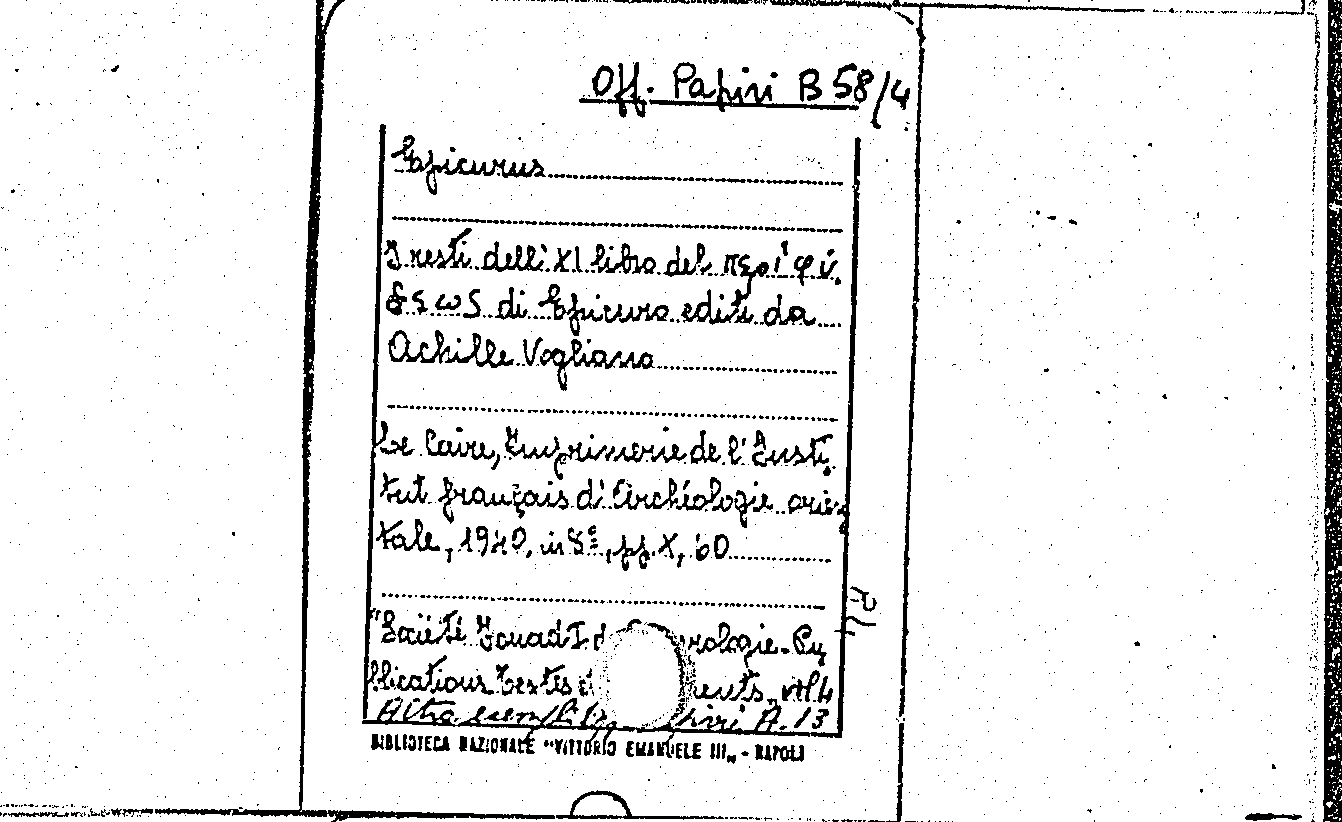 Off. Papiri B 58/4
Epicurus
I resti dell' XI libro del περὶ φύ.
σεως di Epicuro editi da
Achille Vogliano
Le Caire, Imprimerie de l'Insti,
tut français d'Archéologie orien,
tale, 1940, in 8º, pp. X, 60
"Société Fouad I de rologie-Pu
blications Textes et ents, vol. 4
Altro esempl. Papiri A. 13
BIBLIOTECA NAZIONALE "VITTORIO EMANUELE III„ - NAPOLI